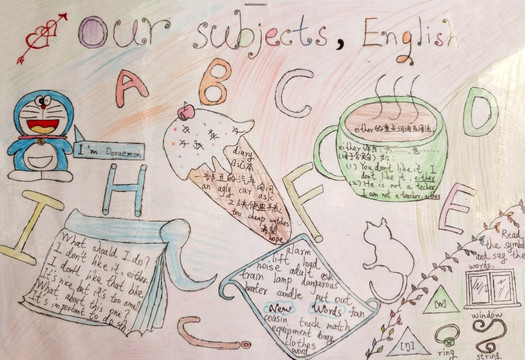 Our subjects, English
A
B
C
D
I'm Doraemon
H
F
E
I
J
diary
日记
an ugly car ask
too cheap watches
希望
hope
either的重点词语及用法
(1) You don't like it. I
don't like it either.
(2) He is not a techer
I am not a teacher either
What should I do?
I don't like it, either.
I don't like that bike.
It's nice, but it's too small
What about this one?
It's important to do
alarm
lift load
noise adult ask
train lamp dangerous
water candle put out
New Words fan
cousin track match
equipment diary
clothes
word
Read
the symbol
and say the
words.
[ŋ]
window
ring
string